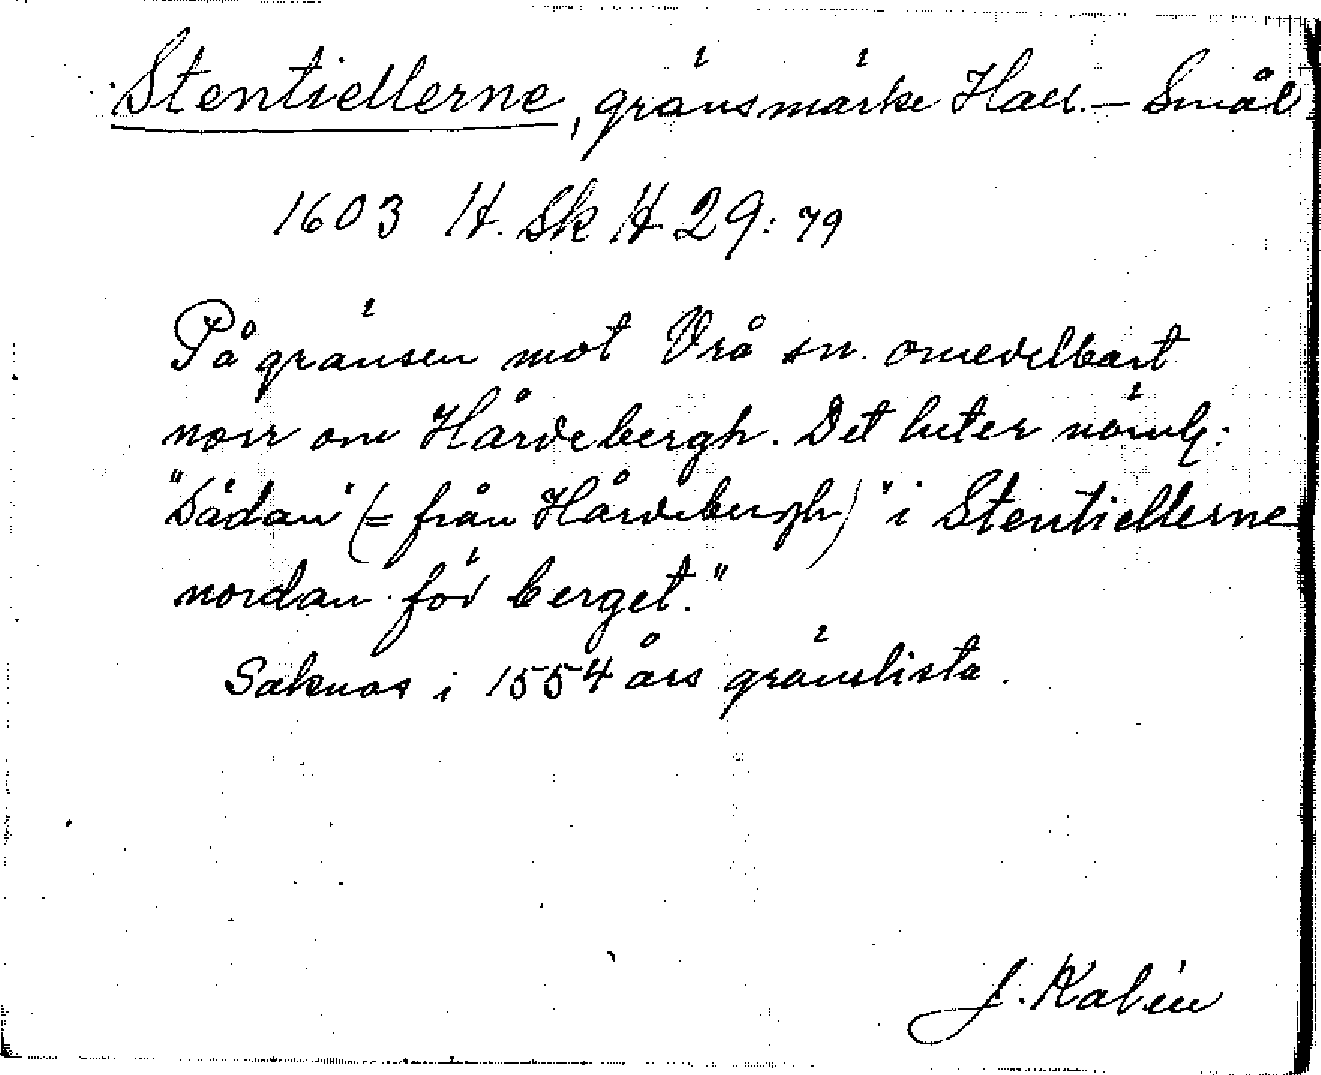 Stentiellerne, gränsmärke Hall. – Smål
1603 H. Sk H 29: 79
På gränsen mot Vrå sn. omedelbart
norr om Hårdebergh. Det heter näml:
"Sädan" (= från Hårdebergh) "i Stentiellerne
nordan för berget."
Saknas i 1554 års gränslista.
J. Kalén